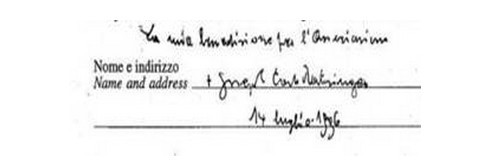 La mia benedizione per l'Association
Nome e indirizzo
Name and address + Joseph Card. Ratzinger
14 luglio 1996